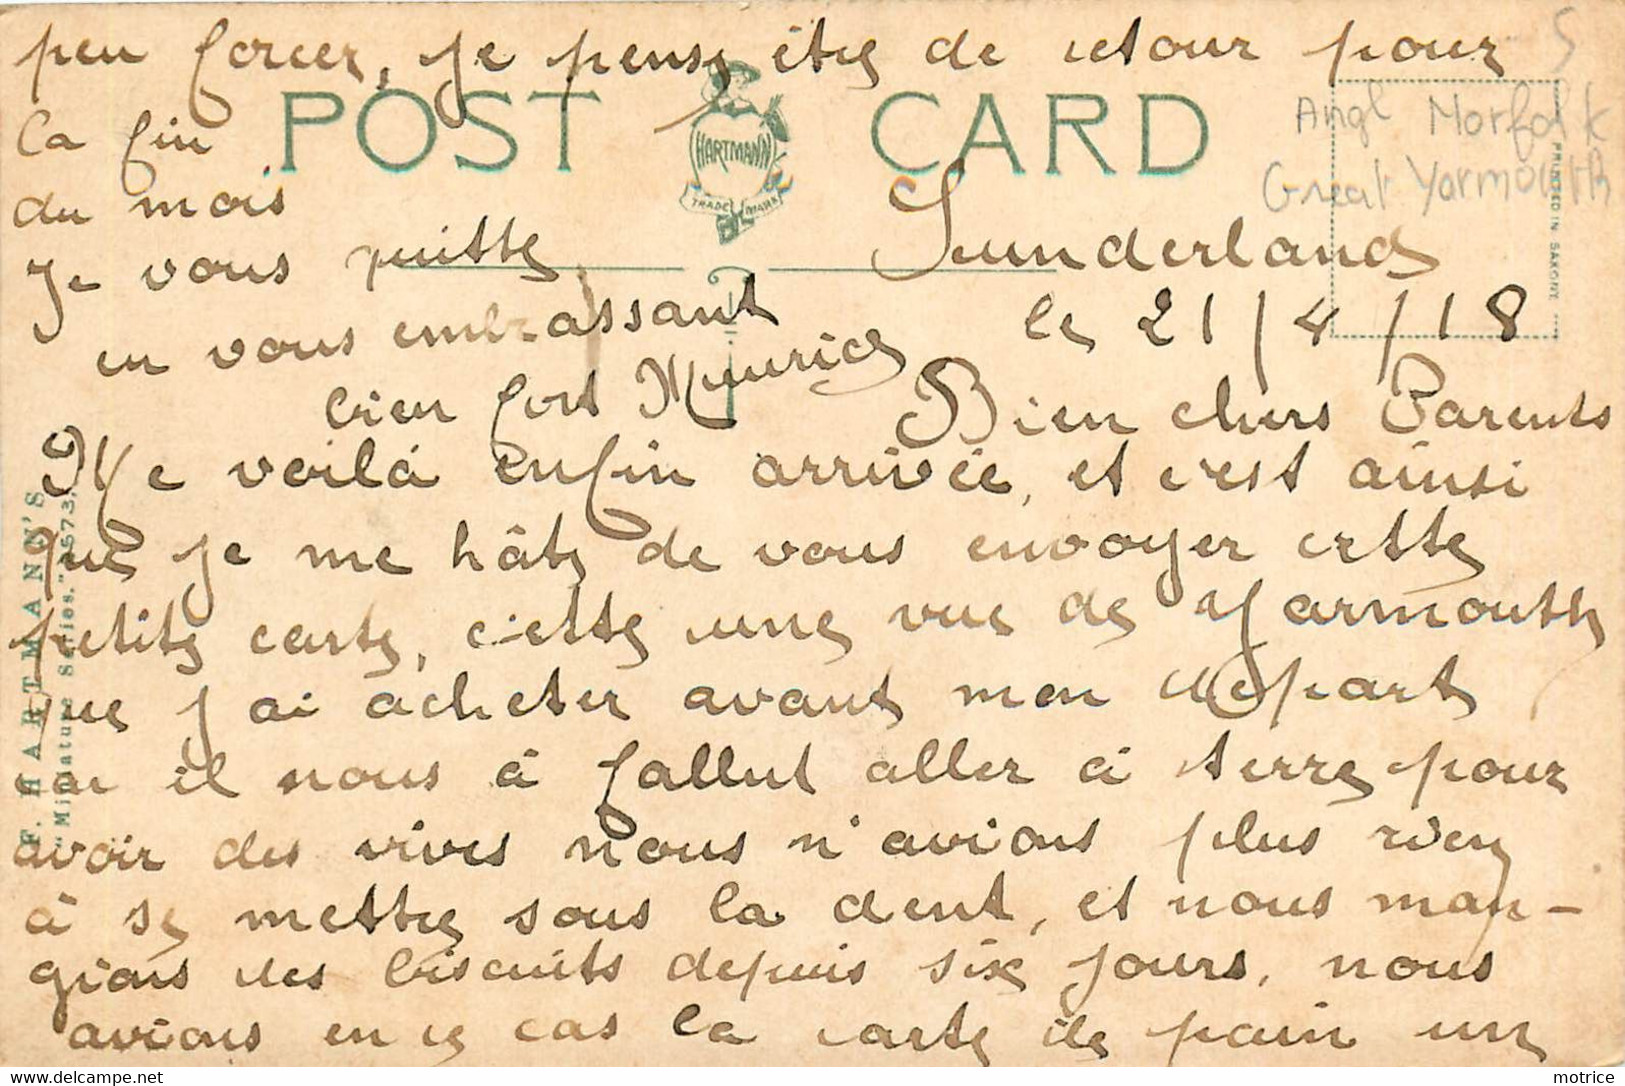 Sunderland
le 21/4/18
Bien chers Parents
Me voilà enfin arrivée, et c'est ainsi
que je me hâte de vous envoyer cette
petite carte, cette une vue de Yarmouth
que j'ai acheter avant mon départ
car il nous à fallut aller à terre pour
avoir des vivres nous n'avions plus rien
à se mettre sous la dent, et nous man-
gions des biscuits depuis six jours, nous
avions en ce cas la carte de pain un
peu forcer, je pense être de retour pour
la fin
du mois
Je vous quitte
en vous embrassant
bien fort Maurice
POST CARD
HARTMANN
TRADE MARK
Angl Norfolk
Great Yarmouth
5
PRINTED IN SAXONY.
F. HARTMANN'S
"Miniature Series."
motrice